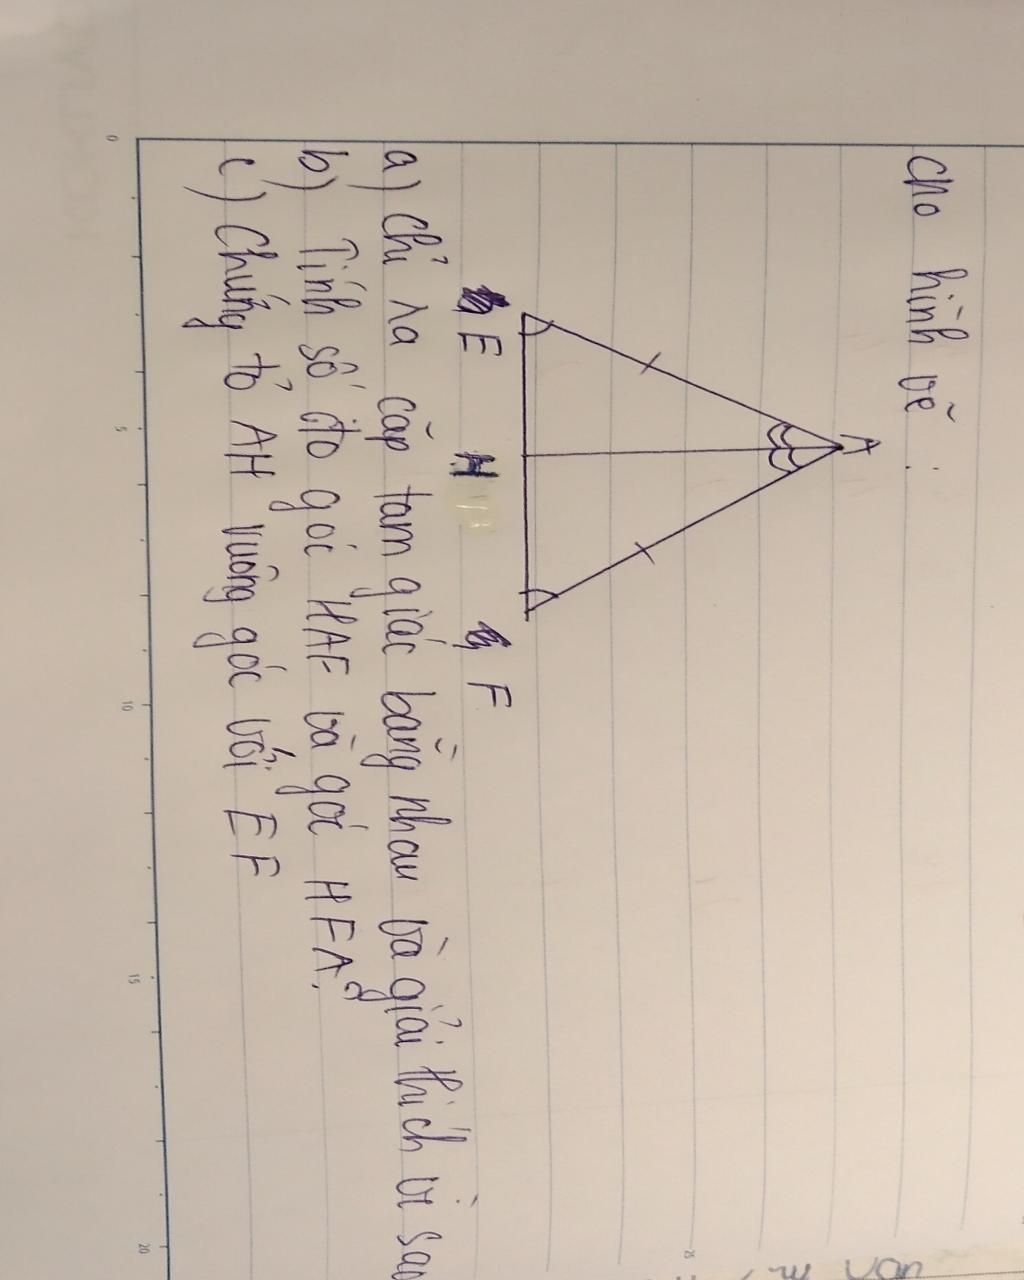 Cho hình vẽ :
A
E H F
a) Chỉ ra cặp tam giác bằng nhau và giải thích vì sao
b) Tính số đo góc HAF và góc HFA?
c) Chứng tỏ AH vuông góc với EF
0 5 10 15 20
25